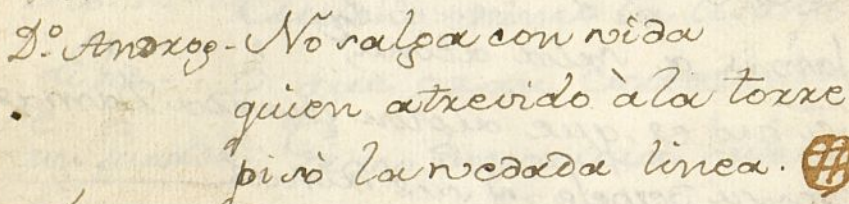 D.º Androg.- No salga con vida
quien atrevido à la torre
pisò la vedada linea.